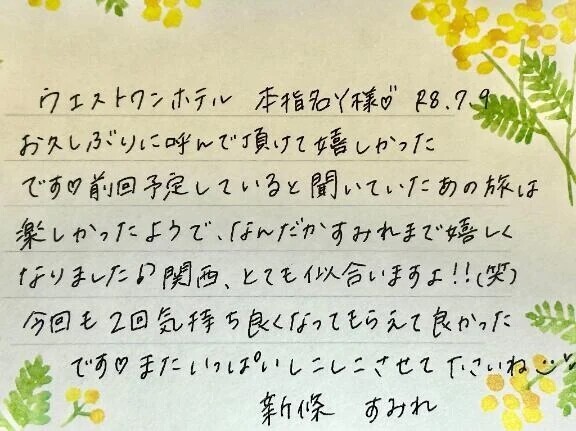 ウエストワンホテル 本指名Y様♡ R8.7.9
お久しぶりに呼んで頂けて嬉しかった
です♡前回予定していると聞いていたあの旅は
楽しかったようで、なんだかすみれまで嬉しく
なりました♪関西、とても似合いますよ!!(笑)
今回も2回気持ち良くなってもらえて良かった
です♡またいっぱいしこしこさせて下さいね
新條 すみれ